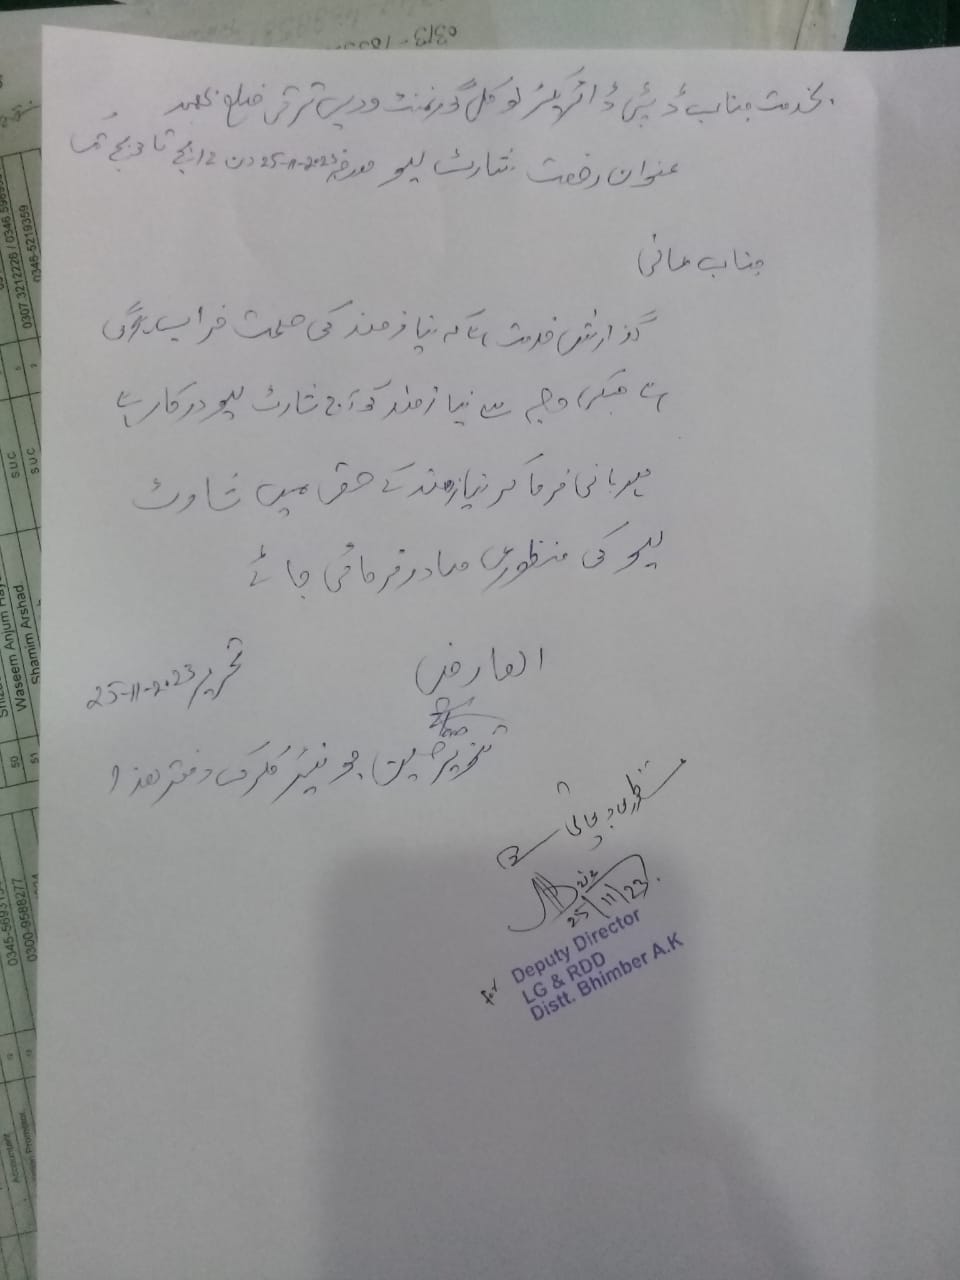 0313-
بخدمت جناب ڈپٹی ڈائریکٹر لوکل گورنمنٹ و دیہی ترقی ضلع بھمبر
عنوان رخصت شارٹ لیو مورخہ 25-11-2023 دن 12 بجے تا 3 بجے تک
جناب عالی
گزارش خدمت ہے کہ نیازمند کی صحت خراب ہو گی
ہے جسکی وجہ سے نیازمند کو آج شارٹ لیو درکار ہے
مہربانی فرما کر نیازمند کے حق میں شارٹ
لیو کی منظوری صادر فرمائی جائے
العارض
تحریر 25-11-2023
جونیئر کلرک دفتر ھذا
25/11/23
for Deputy Director
LG & RDD
Distt. Bhimber A.K
0307 3212226 / 0346
0345-5219359
S U C
S U C
50 Waseem Anjum
51 Shamim Arshad
0300-9588277
Accountant